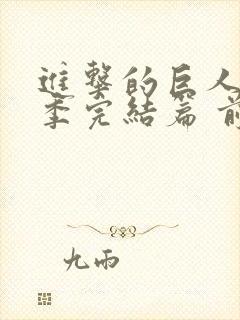 進擊的巨人
季完結篇 前
九雨